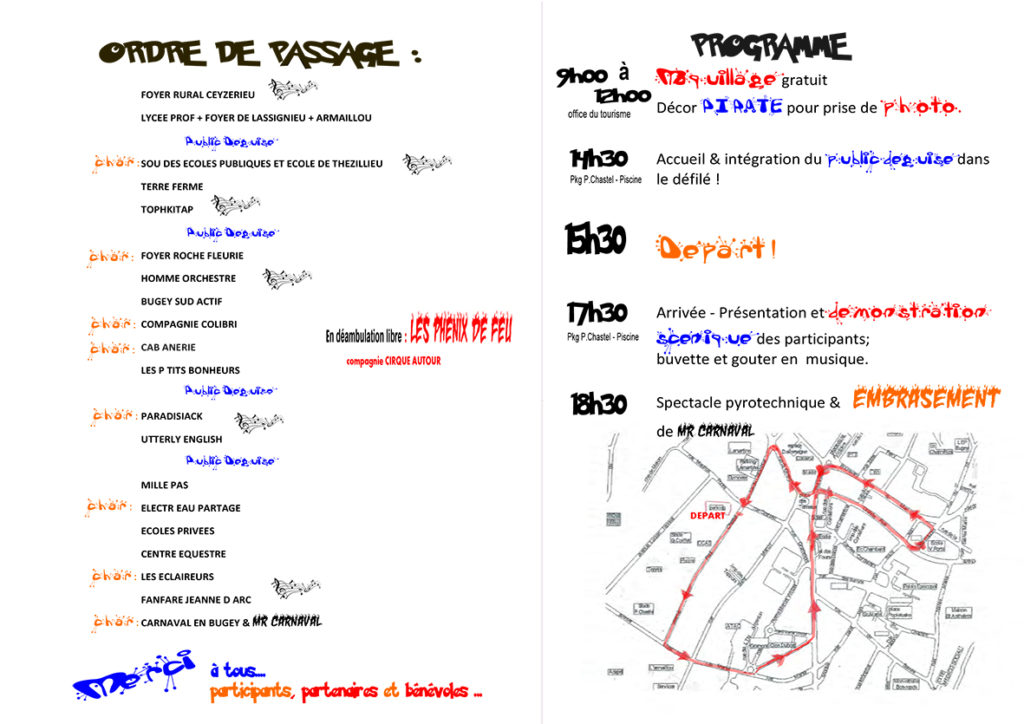 ORDRE DE PASSAGE :
FOYER RURAL CEYZERIEU
LYCEE PROF + FOYER DE LASSIGNIEU + ARMAILLOU
Public Deguise
char : SOU DES ECOLES PUBLIQUES ET ECOLE DE THEZILLIEU
TERRE FERME
TOPHKITAP
Public Deguise
char : FOYER ROCHE FLEURIE
HOMME ORCHESTRE
BUGEY SUD ACTIF
char : COMPAGNIE COLIBRI
char : CAB ANERIE
LES P TITS BONHEURS
Public Deguise
char : PARADISIACK
UTTERLY ENGLISH
Public Deguise
MILLE PAS
char : ELECTR EAU PARTAGE
ECOLES PRIVEES
CENTRE EQUESTRE
char : LES ECLAIREURS
FANFARE JEANNE D ARC
char : CARNAVAL EN BUGEY & MR CARNAVAL
En déambulation libre : LES PHENIX DE FEU
compagnie CIRQUE AUTOUR
Merci à tous....
participants, partenaires et bénévoles ...
PROGRAMME
9h00 à 12h00
office du tourisme
Maquillage gratuit
Décor PIRATE pour prise de photo.
14h30
Pkg P.Chastel - Piscine
Accueil & intégration du public deguise dans
le défilé !
15h30
Depart !
17h30
Pkg P.Chastel - Piscine
Arrivée - Présentation et demonstration
scenique des participants;
buvette et gouter en musique.
18h30
Spectacle pyrotechnique & EMBRASEMENT
de MR CARNAVAL
DEPART